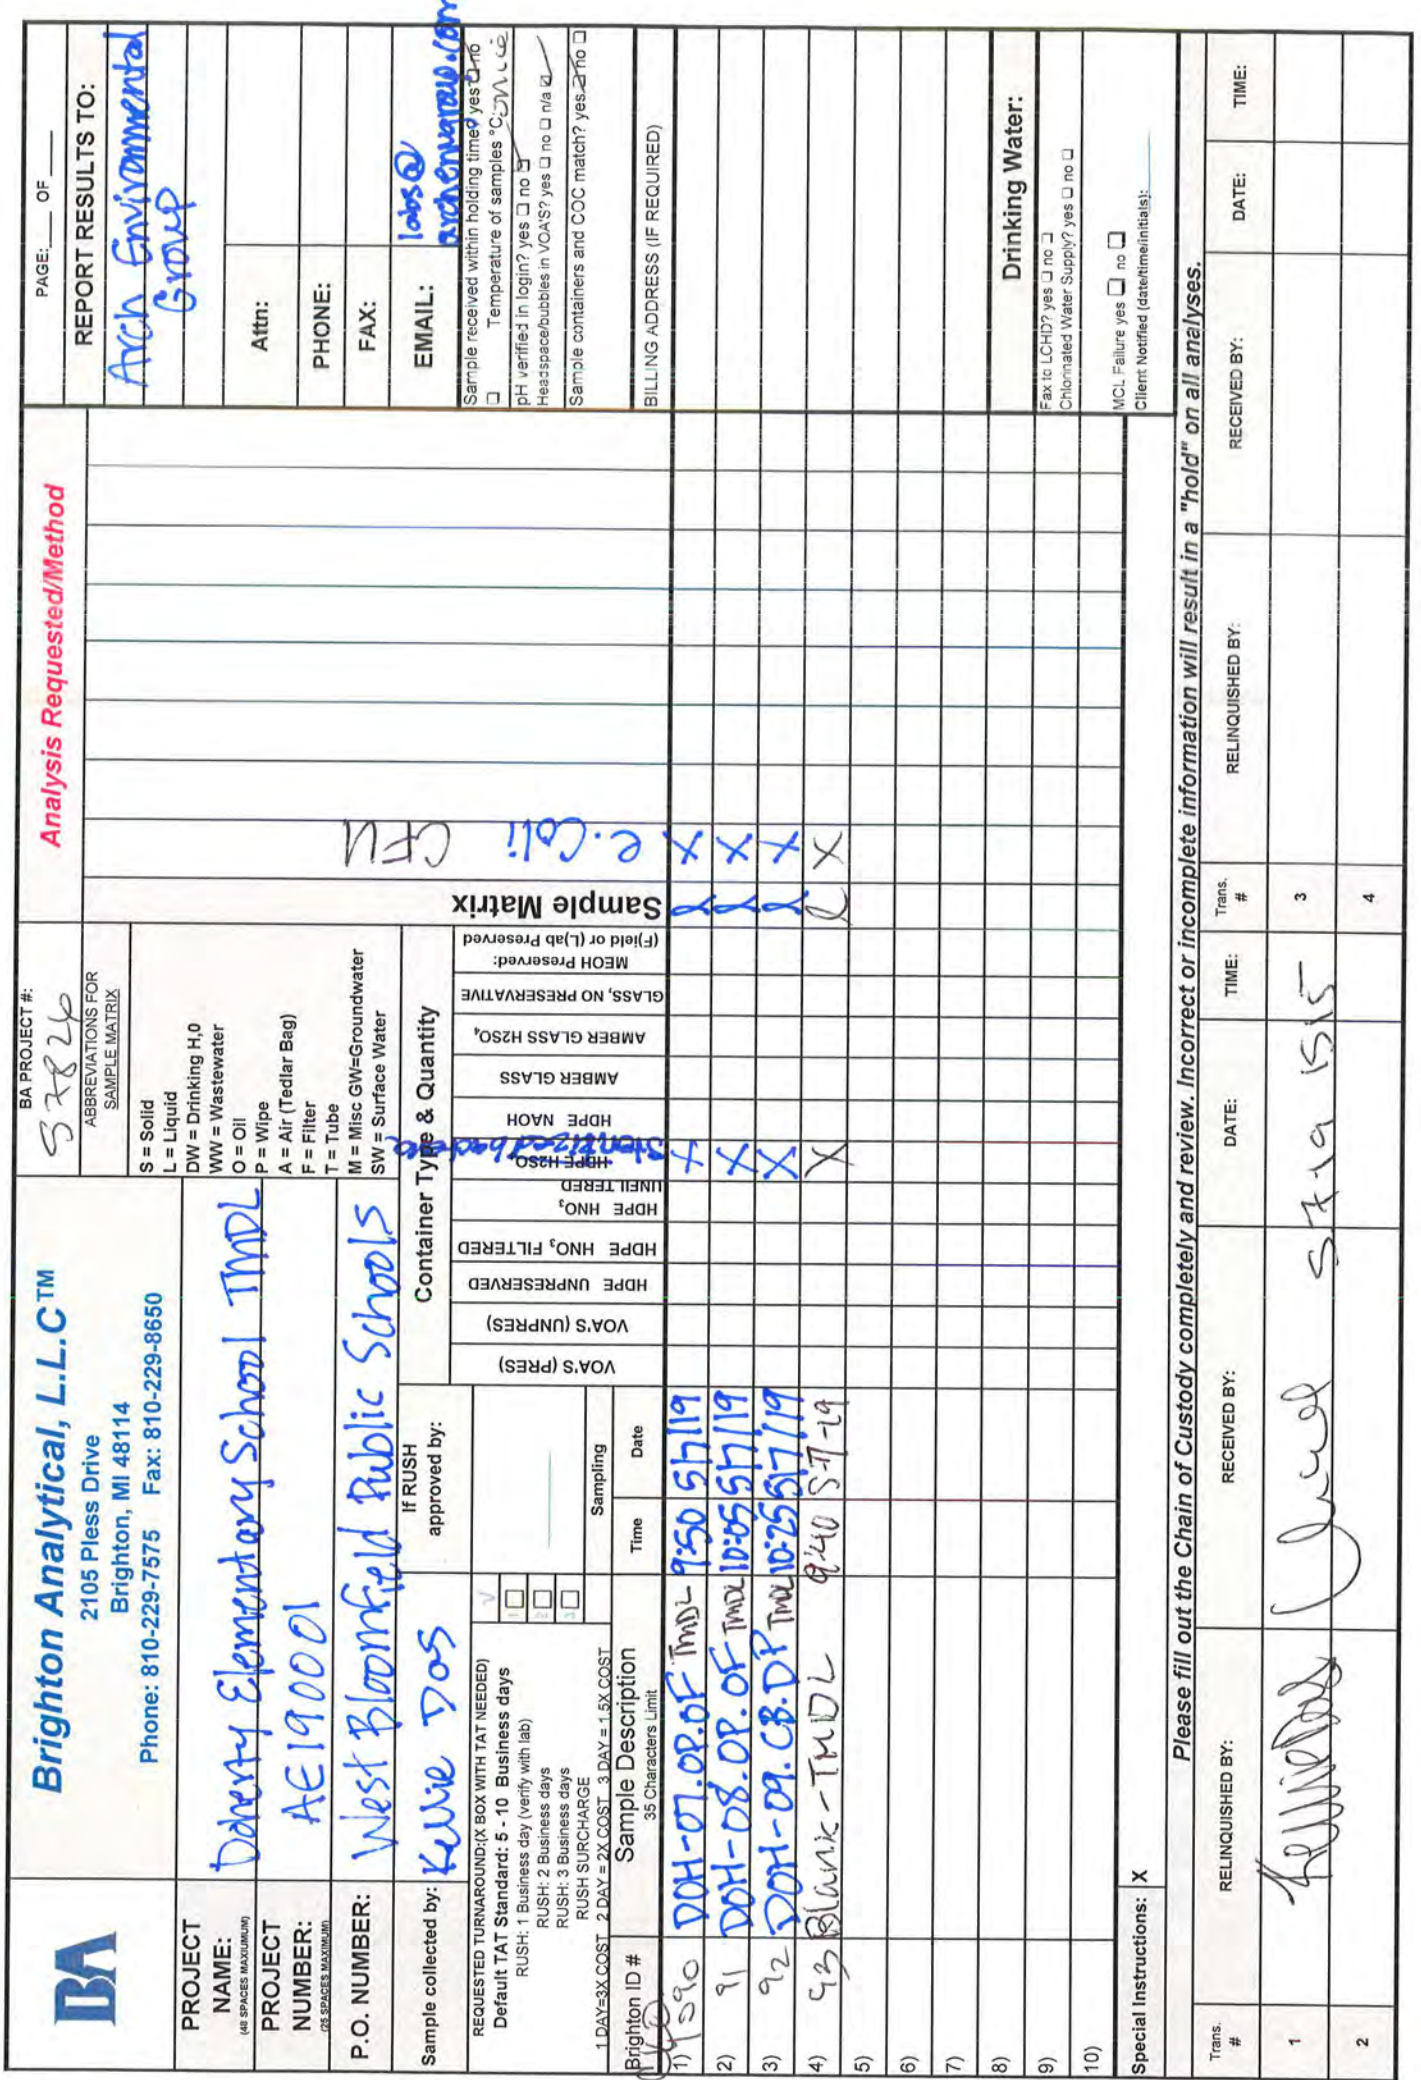 BA
Brighton Analytical, L.L.C™
2105 Pless Drive
Brighton, MI 48114
Phone: 810-229-7575 Fax: 810-229-8650
BA PROJECT #:
57826
ABBREVIATIONS FOR
SAMPLE MATRIX
S = Solid
L = Liquid
DW = Drinking H,0
WW = Wastewater
O = Oil
P = Wipe
A = Air (Tedlar Bag)
F = Filter
T = Tube
M = Misc GW=Groundwater
SW = Surface Water
Analysis Requested/Method
PAGE:___ OF ___
REPORT RESULTS TO:
Arch Environmental
Group
Attn:
PHONE:
FAX:
EMAIL: labs@
archenvgroup.com
PROJECT
NAME:
(48 SPACES MAXIUMUM)
Doherty Elementary School TMDL
PROJECT
NUMBER:
(25 SPACES MAXIMUM)
AE190001
P.O. NUMBER:
West Bloomfield Public Schools
Sample collected by: Kellie Dos
If RUSH
approved by:
REQUESTED TURNAROUND:(X BOX WITH TAT NEEDED)
Default TAT Standard: 5 - 10 Business days
RUSH: 1 Business day (verify with lab)
RUSH: 2 Business days
RUSH: 3 Business days
RUSH SURCHARGE
1 DAY=3X COST 2 DAY = 2X COST 3 DAY = 1.5X COST
√
1
2
3
Sampling
Container Type & Quantity
VOA'S (PRES)
VOA'S (UNPRES)
HDPE UNPRESERVED
HDPE HNO3 FILTERED
HDPE HNO3
UNFILTERED
HDPE H2SO
Sterilized bacteria
HDPE NAOH
AMBER GLASS
AMBER GLASS H2SO4
GLASS, NO PRESERVATIVE
MEOH Preserved:
(F)ield or (L)ab Preserved
Sample Matrix
e. Coli
CFU
Sample received within holding time? yes □ no
□ Temperature of samples °C: on ice
pH verified in login? yes □ no □
Headspace/bubbles in VOA'S? yes □ no □ n/a □
Sample containers and COC match? yes □ no □
BILLING ADDRESS (IF REQUIRED)
Brighton ID #
Sample Description
35 Characters Limit
Time
Date
1) 590 DOH-07.OP.OF TMDL 9:50 5/7/19 X X
2) 91 DOH-08.OP.OF TMDL 10:05 5/7/19 X X
3) 92 DOH-09.CB.DP TMDL 10:25 5/7/19 X X
4) 93 Blank-TMDL 9:40 5-7-19 X L X
5)
6)
7)
8)
9)
10)
Drinking Water:
Fax to LCHD? yes □ no □
Chlorinated Water Supply? yes □ no □
MCL Failure yes □ no □
Client Notified (date/time/initials):
Special Instructions: X
Please fill out the Chain of Custody completely and review. Incorrect or incomplete information will result in a "hold" on all analyses.
Trans.
#
RELINQUISHED BY:
RECEIVED BY:
DATE:
TIME:
Trans.
#
RELINQUISHED BY:
RECEIVED BY:
DATE:
TIME:
1 5-7-19 1515 3
2 4